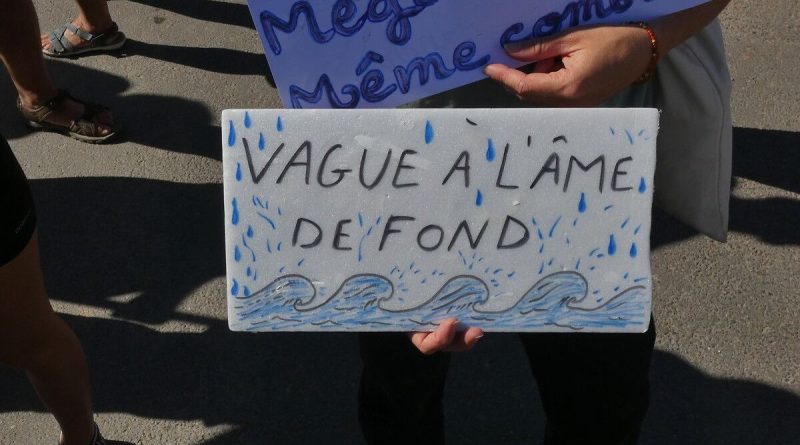 Még
Même comb
VAGUE À L'ÂME
DE FOND